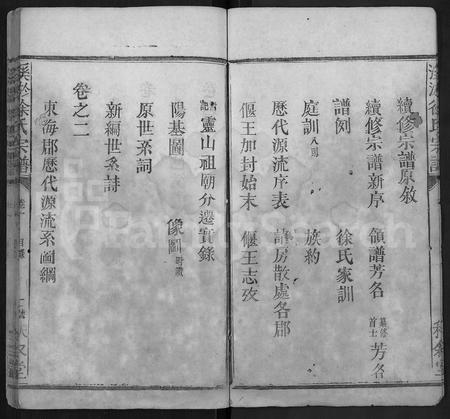 續修宗譜原敘
續修宗譜新序 領譜芳名 纂修首士芳名
譜例 徐氏家訓
庭訓八則 族約
歷代源流序表 諸房散處各郡
偃王加封始末 偃王志攷
舊記靈山祖廟分遷實錄
陽基圖 像圖附識
原世系詞
新編世系詩
卷之二
東海郡歷代源流系圖綱
徐氏宗譜